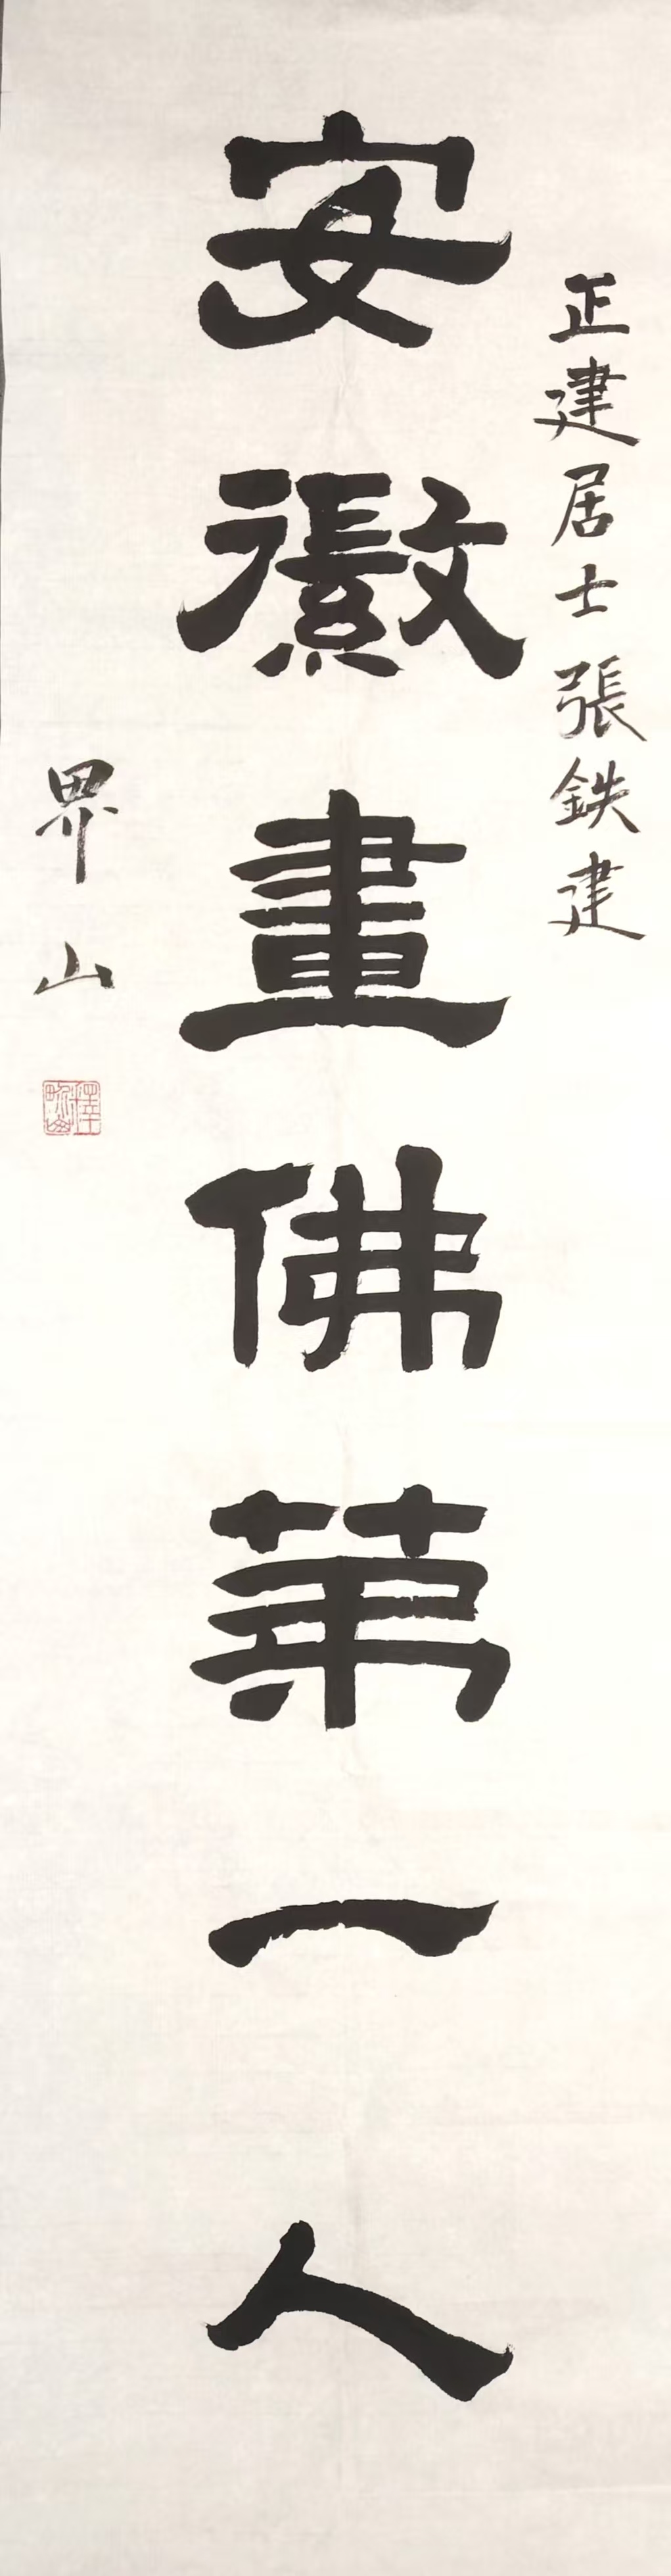 正建居士張鉄建
安徽畫佛第一人
界山